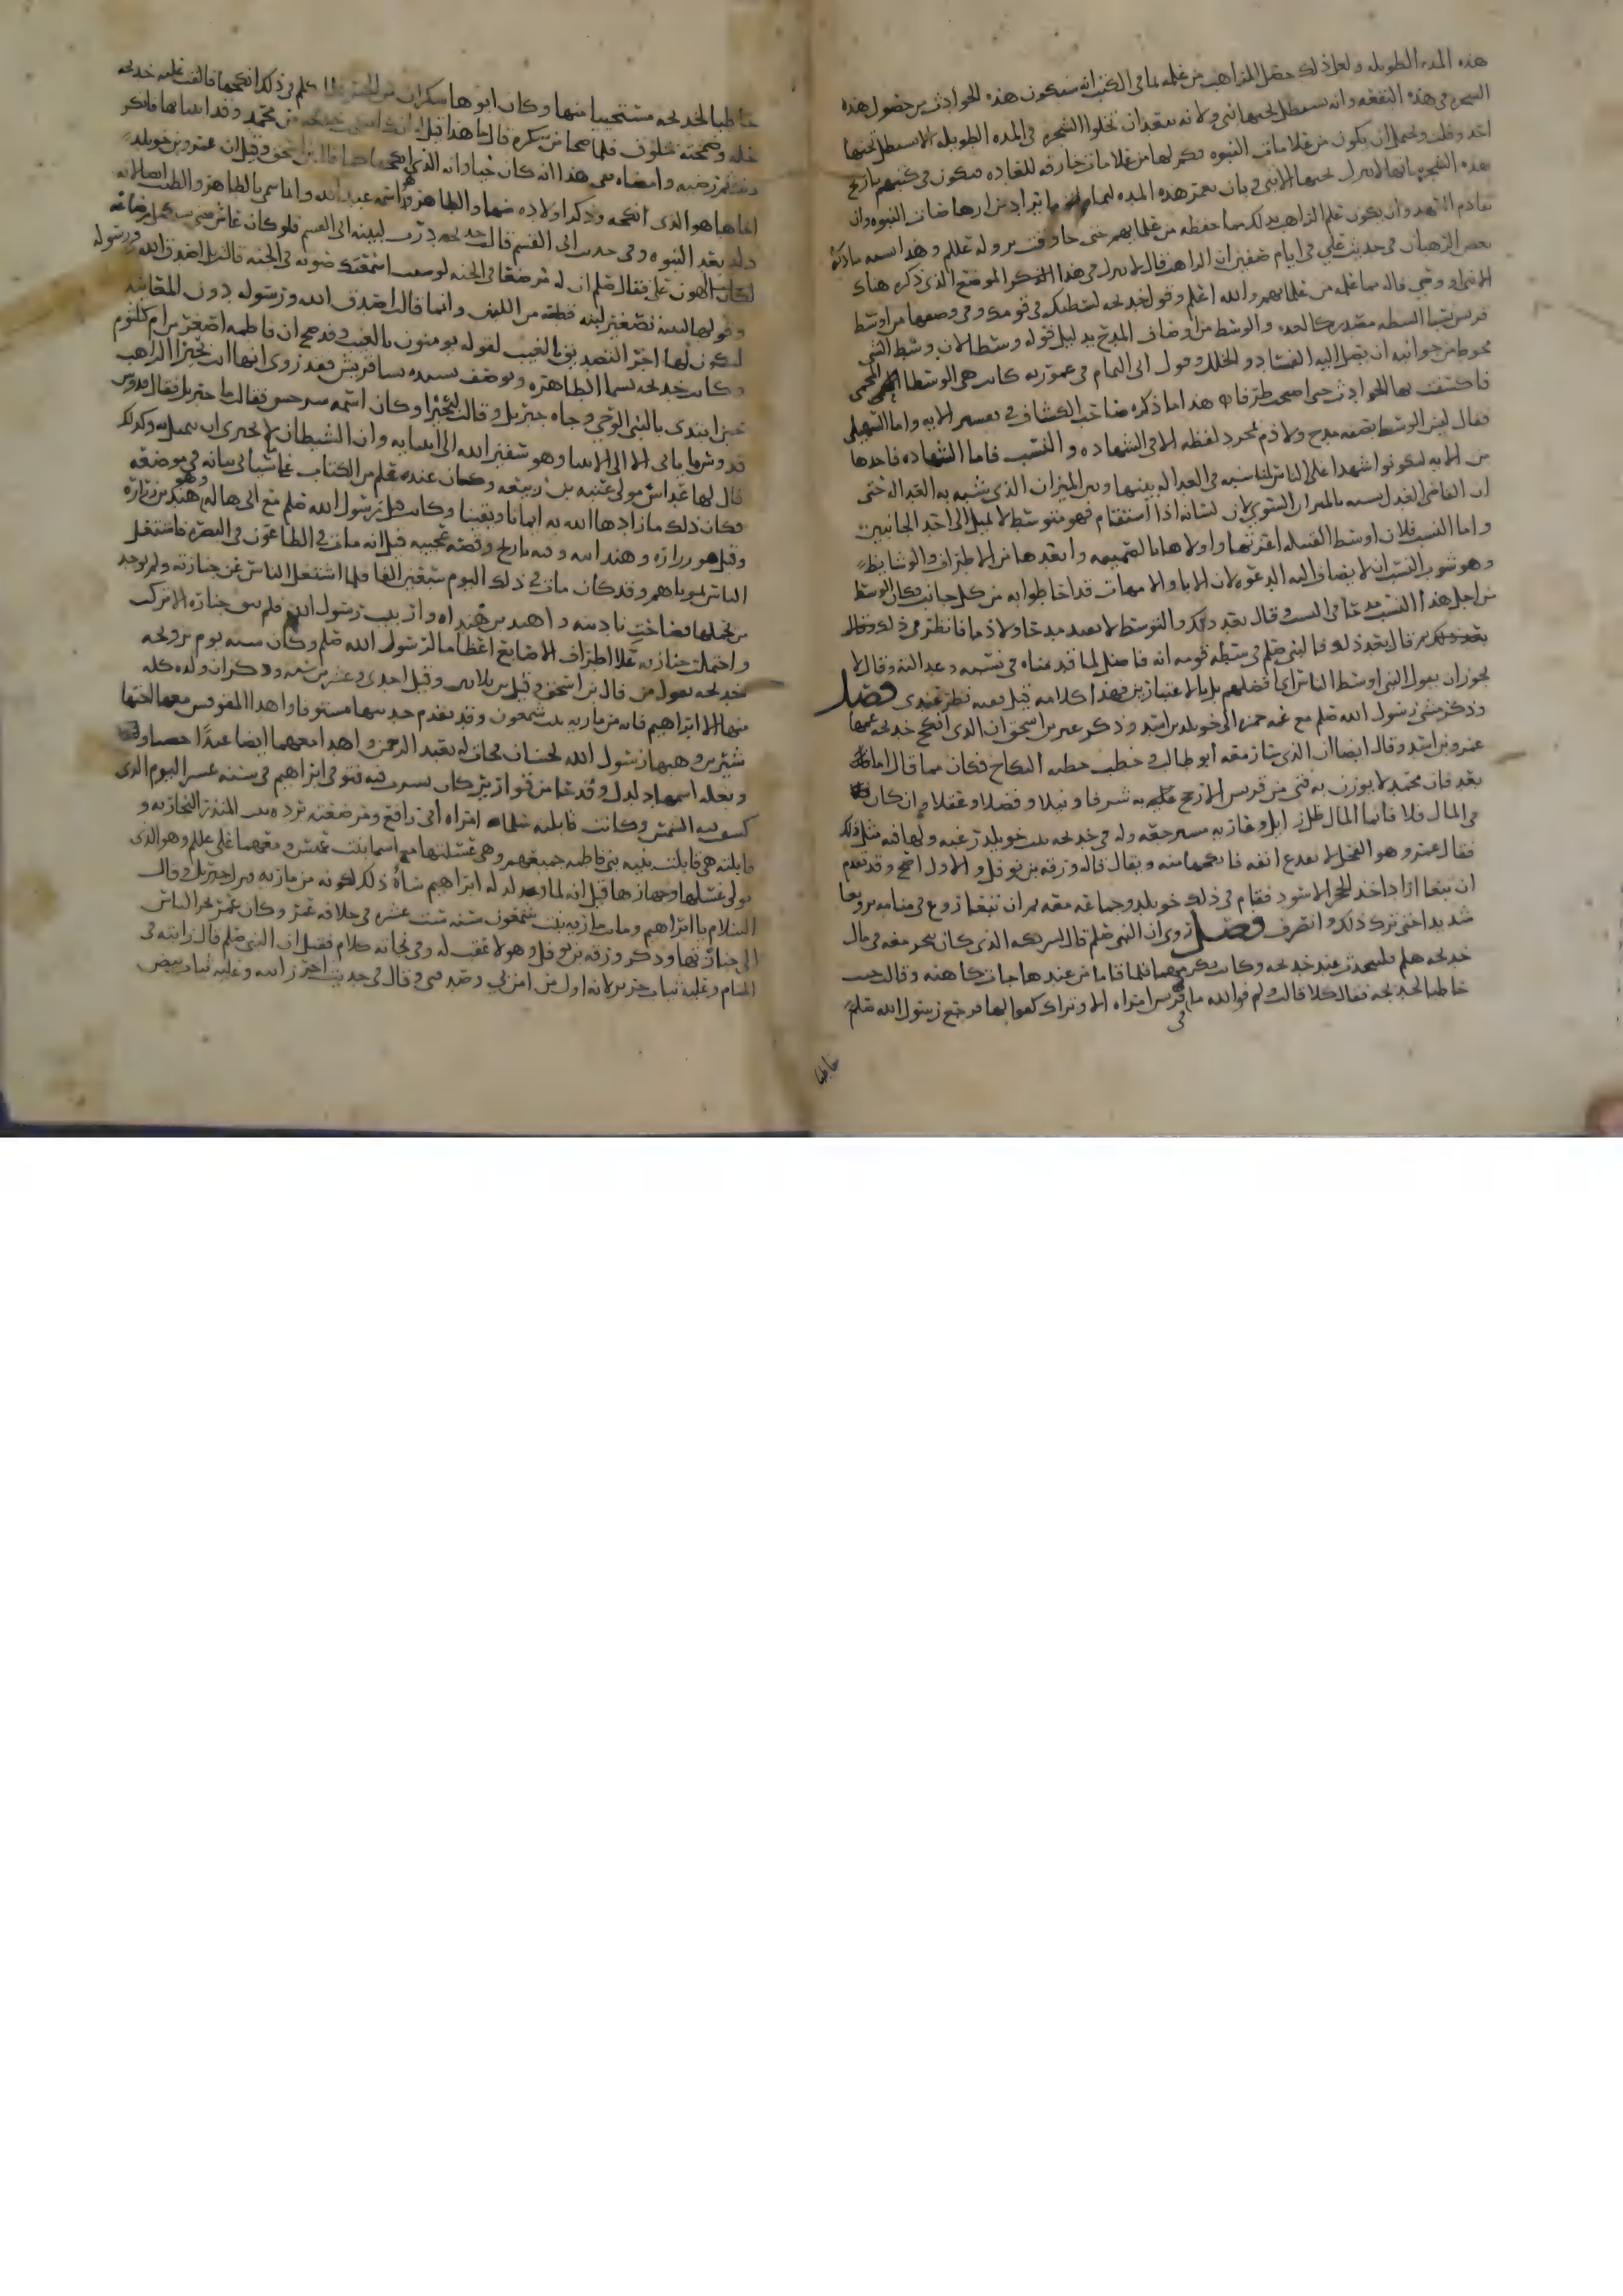 هذه المده الطويله ولعل ذلك حصل للراهب من علمه بما في الكتب انه ستكون هذه الحوادث من حصول هذه
الشجره في هذه البقعه وانه يستظل تحتها نبي ولانه يبعد ان تخلوا الشجره في المده الطويله لا يستظل تحتها
احد وقلت ويحتمل ان يكون من علامات النبوه فكم لها من علامات خارقه للعاده فيكون في كتبهم تاريخ
هذه الشجره بانها لا ينزل تحتها الا نبي بان يعمر هذه المده
تقادم العهد وان يكون علم الراهب بذلك مما حفظه من علمايهم حتى جا وقت نزوله صلم وهذا
بعض الرهبان في حديث علي في ايام صفين ان الراهب قال لا ينزل في هذا المكان الموضع الذي ذكره هناك
الا نبي او وصي قاله مما علمه من علمايهم والله اعلم وقول خديجه لسطتك في قومك وفي وصفها من اوسط
قريش نسبا السطه مصدر كالعده والوسط من اوصاف المدح بدليل قوله وسطا لان وسط الشي
محوط من جوانبه ان يصل اليه الفساد والخلل وقول ابي التمام في عموريه كانت هي الوسط المحمي
فاكتنفت بها الحوادث حتى اصبحت طرفا هذا ما ذكره صاحب الكشاف في تفسير الايه واما السهيلي
فقال ليس الوسط بصفه مدح ولا ذم لمجرد لفظه الا في الشهاده والنسب فاما الشهاده فاحدها
من الايه لتكونوا شهدا على الناس لمناسبه في العداله بينها وبين الميزان الذي شبه به العداله حتى
ان القاضي العدل يسمى بالميزان المستوي لان لسانه اذا استقام فهو متوسط لا يميل الى احد الجانبين
واما النسب فلان اوسط القبيله اعرقها واولاها بالصميمه وابعدها من الاطراف والوشايظ
وهو شوب النسب ان لا يضاف اليه الدعوه لان الابا والامهات قد احاطوا به من كل جانب فكان الوسط
من اجل هذا النسب مدحا في النسب وقال بعد ذلك والتوسط لا يفيد مدحا ولا ذما فانظر في ذلك
قال بعد ذلك فالنبي صلم في سطه قومه انه فاضل لما قدمناه في نسبه وعدالته وقال لا
يجوز ان يقول النبي اوسط الناس اي افضلهم بل بالاعتبارين فهذا كلامه قيل فيه نظر عندي فصل
وذكر مشي رسول الله صلم مع عمه حمزه الى خويلد بن اسد وذكر غير بن اسحق ان الذي انكح خديجه عمها
عمرو بن اسد وقال ايضا ان الذي سار معه أبو طالب وخطب خطبه النكاح فكان مما قال اما
بعد فان محمدا لا يوزن به فتى من قريش الا رجح به شرفا ونبلا وفضلا وعقلا وان كان
في المال قلا فانما المال ظل زايل وعاريه مسترجعه وله في خديجه بنت خويلد رغبه ولها فيه مثل ذلك
فقال عمرو هو الفحل لا يقدع انفه فانكحها منه ويقال قاله ورقه بن نوفل والاول اصح وقد تقدم
ان تبعا اراد اخذ الحجر الاسود فقام في ذلك خويلد وجماعه معه ثم ان تبعا روع في منامه ترويعا
شديدا حتى ترك ذلك وانصرف فصل روي ان النبي صلم قال لشريكه الذي كان يتجر معه في مال
خديجه هلم فلنتحدث عند خديجه وكانت تكرمهما فلما قاما من عندها جات كاهنه وقالت جيت
خاطبا لخديجه فقال كلا فقالت ولم فوالله ما في قريش امراه الا وتراك كفوا لها فرجع رسول الله صلم
خاطبا
خاطبا لخديجه مستحييا منها وكان ابوها سكران من الخمر كلم في ذلك انكحها فالقت عليه خديجه
حله وضمخته بخلوق فلما صحا من سكره قال ما هذا قيل له انك انكحت خديجه من محمد وقد ابتنا بها فانكر
ذلك ثم رضيه وامضاه ففي هذا انه كان حيا وانه الذي انكحها كما قال بن اسحق وقيل ان عمرو بن خويلد
اخاها هو الذي انكحه وذكر اولاده منها والطاهر هو اسمه عبد الله وانما سمي بالطاهر والطيب ايضا لانه
ولد بعد النبوه وفي حديث ابي القسم قالت خديجه درت لبينه ابي القسم فلو كان عاش حتى يستكمل رضاعه
لكان اهون علي فقال صلم ان له مرضعا في الجنه لو شيت اسمعتك صوته في الجنه قالت بل اصدق الله ورسوله
وقولها لبينه تصغير لبنه قطعه من اللبن وانما قالت اصدق الله ورسوله دون المعاينه
ليكون لها اجر التصديق بالغيب لقوله يومنون بالغيب وقد صح ان فاطمه اصغر من ام كلثوم
وكانت خديجه تسما الطاهره وتوصف بسيده نسا قريش فقد روي انها اتت بحيرا الراهب
حين ابتدى بالنبي الوحي وجاه جبريل وقالت لبحيرا وكان اسمه سرجس فقالت ما جبريل فقال قدوس
قدوس ما ياتي الا الى الانبيا وهو سفير الله الى انبيايه وان الشيطان لا يجتري ان يتمثل به وكذلك
قال لها عداس مولى عتبه بن ربيعه وكان عنده علم من الكتاب بيانه في موضعه
فكان ذلك ما زادها الله به ايمانا ويقينا وكانت قبل رسول الله صلم مع ابي هاله وهو هند بن زراره
وقيل هو زراره وهند ابنه وفيه تاريخ وقصه عجيبه قيل انه مات في الطاعون في البصره فاشتغل
الناس بموتاهم وقد كان مات في ذلك اليوم سبعين الفا فلما اشتغل الناس عن جنازته ولم يوجد
من يحملها فصاحت نادبته وا هند بن هنداه وا ربيب رسول الله فلم تبق جنازه الا تركت
واحتملت جنازته على اطراف الاصابع اعظاما لرسول الله صلم وكان سنه يوم تزوجه
خديجه بقول من قال بن اسحق وقيل بن ثلاثين وقيل احدى وعشرين سنه وذكر ان ولده كله
منها الا ابراهيم فانه من ماريه بنت شمعون وقد تقدم حديثها مستوفا واهدا المقوقس معها اختها
شيرين وهبها رسول الله لحسان فجات له بعبد الرحمن واهدا معهما ايضا عبدا خصيا
وبغله اسمها دلدل وقدحا من قوارير كان يشرب فيه فتوفي ابراهيم في سنه عشر اليوم الذي
كسفت فيه الشمس وكانت قابلته سلما امراه ابي رافع ومرضعته برده بنت المنذر النجاريه و
قابلته هي قابلت بنيه بني فاطمه جميعهم وهي غسلتها مع اسما بنت عميس ومعهما علي صلم وهو الذي
تولى غسلها وجهازها قيل انه لما ولد له ابراهيم ساه ذلك لكونه من ماريه فنزل جبريل وقال
السلام يا ابا ابراهيم وماتت ماريه بنت شمعون سنه ست عشره في خلافه عمر وكان عمر يحشر الناس
الى جنازتها وذكر ورقه بن نوفل وهو لا عقب له وفي نجاته كلام فقيل ان النبي صلم قال رايته في
المنام وعليه ثياب حرير لانه اول من امن بي وصدقني وقال في حديث اخر رايته وعليه ثياب بيض